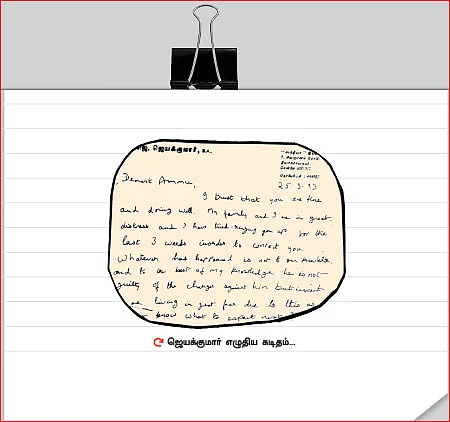 ஜெயக்குமார்,
25-3-93
Dearest Ammu,
I trust that you are fine
and doing well. My family and I are in great
distress and I have tried ringing you up for the
last 3 weeks inorder to contact you.
Whatever has happened is not to our knowledge
and to the best of my knowledge he is not
guilty of the charges against him but innocent
we living in great fear due to this as
know what to expect next
ஜெயக்குமார் எழுதிய கடிதம்...